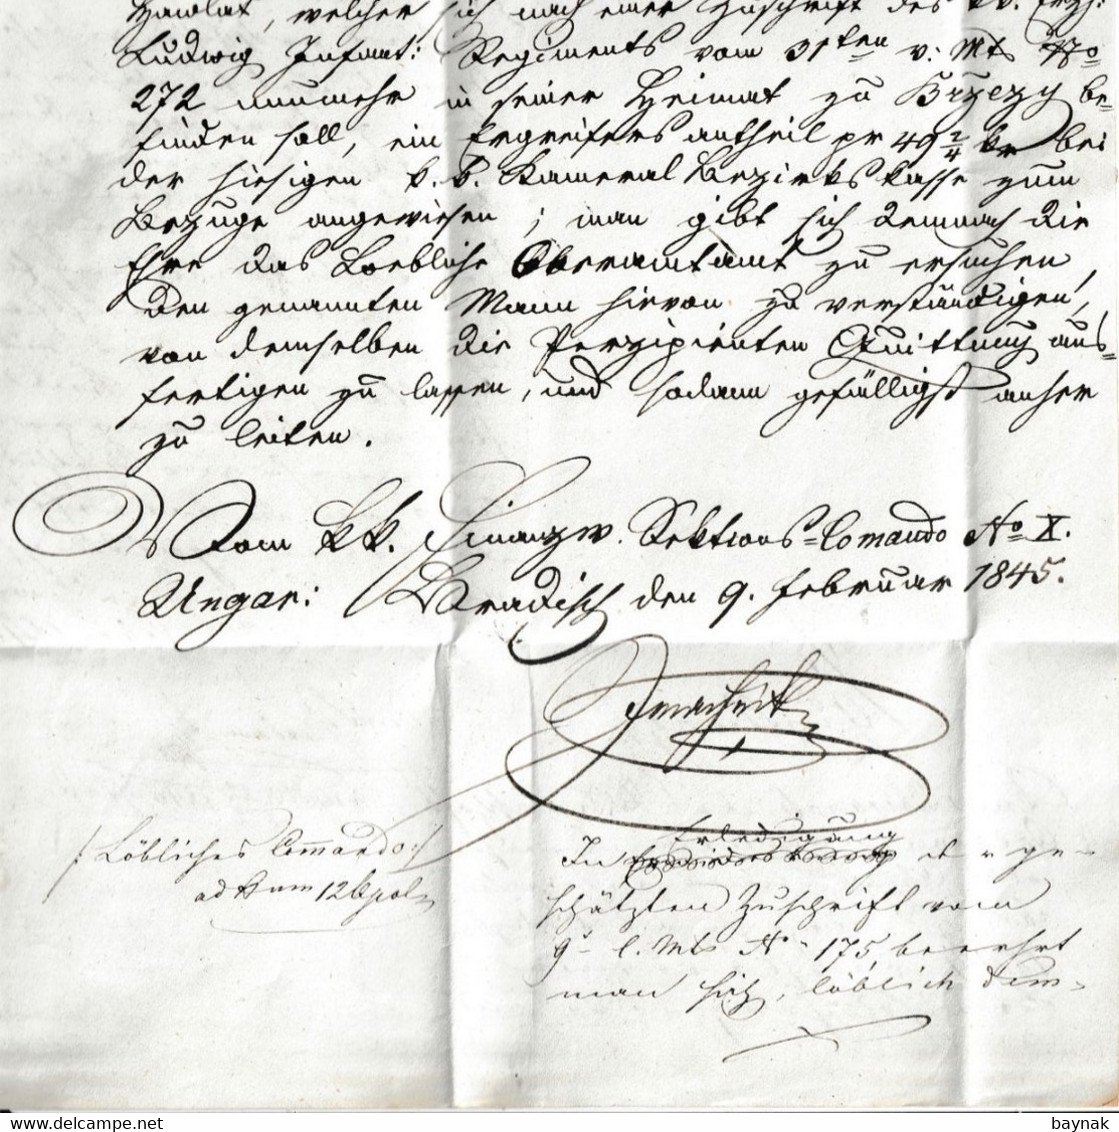 welcher sich nach einer Zuschrift des kk. Erzh:
Ludwig Infant: Regiments vom 31ten v. Mts No
272 nunmehr in seiner Heimat zu Brzezy be=
finden soll, ein Ergreifers antheil pr 49 2/4 kr bei
der hiesigen k. k. Kameral Bezirks kasse zum
Bezuge angewiesen; man gibt sich demnach die
Ehre das Loebliche Oberamtamt zu ersuchen,
den genannten Mann hievon zu verständigen,
von demselben die Perzipienten Quittung aus=
fertigen zu lassen, und sodann gefälligst anher
zu leiten.
Vom kk. Finanzw. Sektions=Comando No X.
Ungar: Hradisch den 9. Februar 1845.
/: Löbliches Commando :/
In Erledigung der ge-
schätzten Zuschrift vom
9t l. Mts No 175, beehrt
man sich, löblich dem-
baynak